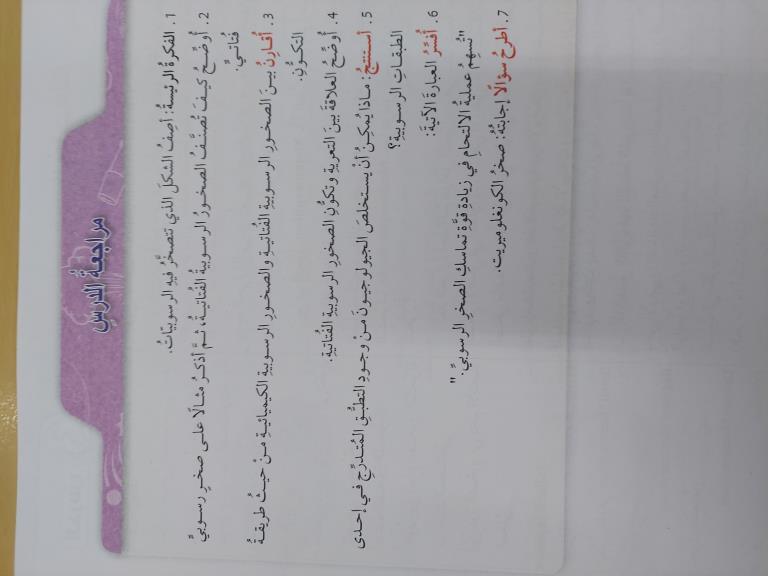 مراجعةُ الدرسِ
1. الفكرةُ الرئيسةُ: أصِفُ الشكلَ الذي تتصخَّرُ فيهِ الرسوبيّاتُ.
2. أُوضِّحُ كيفَ تُصنَّفُ الصخورُ الرسوبيةُ الفُتاتيةُ، ثمَّ أذكرُ مثالًا على صخرٍ رسوبيٍّ
فُتاتيٍّ.
3. أُقارِنُ بينَ الصخورِ الرسوبيةِ الفُتاتيةِ والصخورِ الرسوبيةِ الكيميائيةِ منْ حيثُ طريقةُ
التكوُّنِ.
4. أُوضِّحُ العلاقةَ بينَ التعريةِ وتكوُّنِ الصخورِ الرسوبيةِ الفُتاتيةِ.
5. أستنتجُ: ماذا يُمكِنُ أنْ يستخلصَ الجيولوجيونَ منْ وجودِ التطبُّقِ المُتدرِّجِ في إحدى
الطبقاتِ الرسوبيةِ؟
6. أُفسِّرُ العبارةَ الآتيةَ:
"تُسهِمُ عمليةُ الالتحامِ في زيادةِ قوَّةِ تماسكِ الصخرِ الرسوبيِّ."
7. أطرحُ سؤالًا إجابتُهُ: صخرُ الكونغلوميريت.